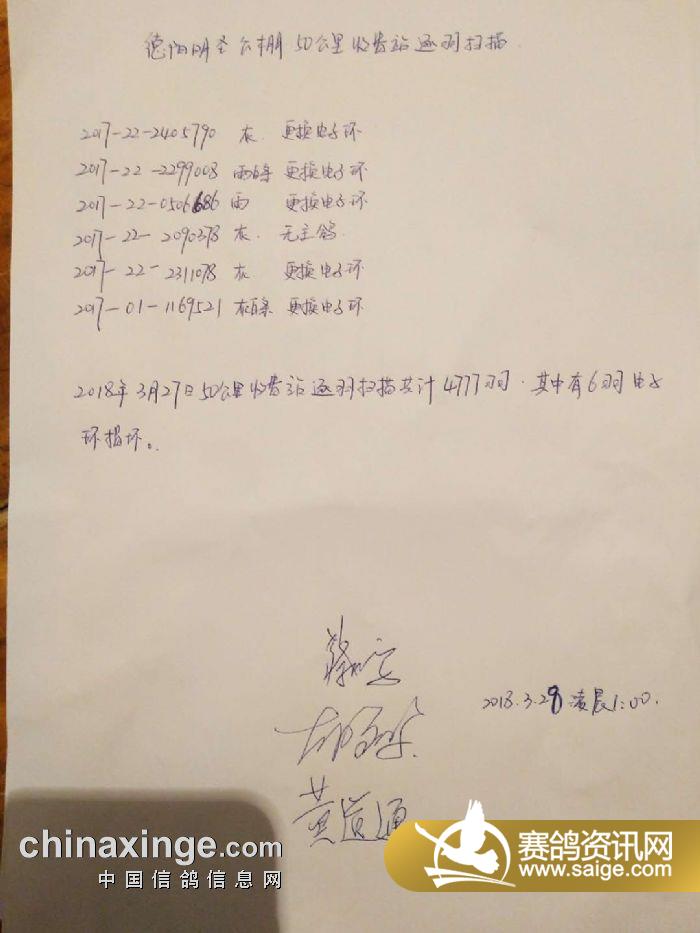 德阳明圣公棚50公里收费站逐羽扫描
2017-22-2405790 灰. 更换电子环
2017-22-2299008 雨白条 更换电子环
2017-22-0506686 雨 更换电子环
2017-22-2090378 灰. 无主鸽.
2017-22-2311078 灰 更换电子环
2017-01-1169521 灰白条 更换电子环
2018年3月27日50公里收费站逐羽扫描共计4777羽.其中有6羽电子
环损坏。
2018.3.28凌晨1:00.
黄道通
chinaxinge.com
中国信鸽信息网
赛鸽资讯网
www.saige.com